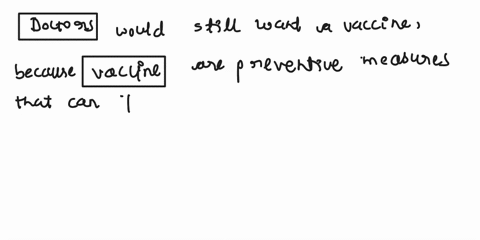 Doctors would still want a vaccine,
because vaccine are preventive measures
that can